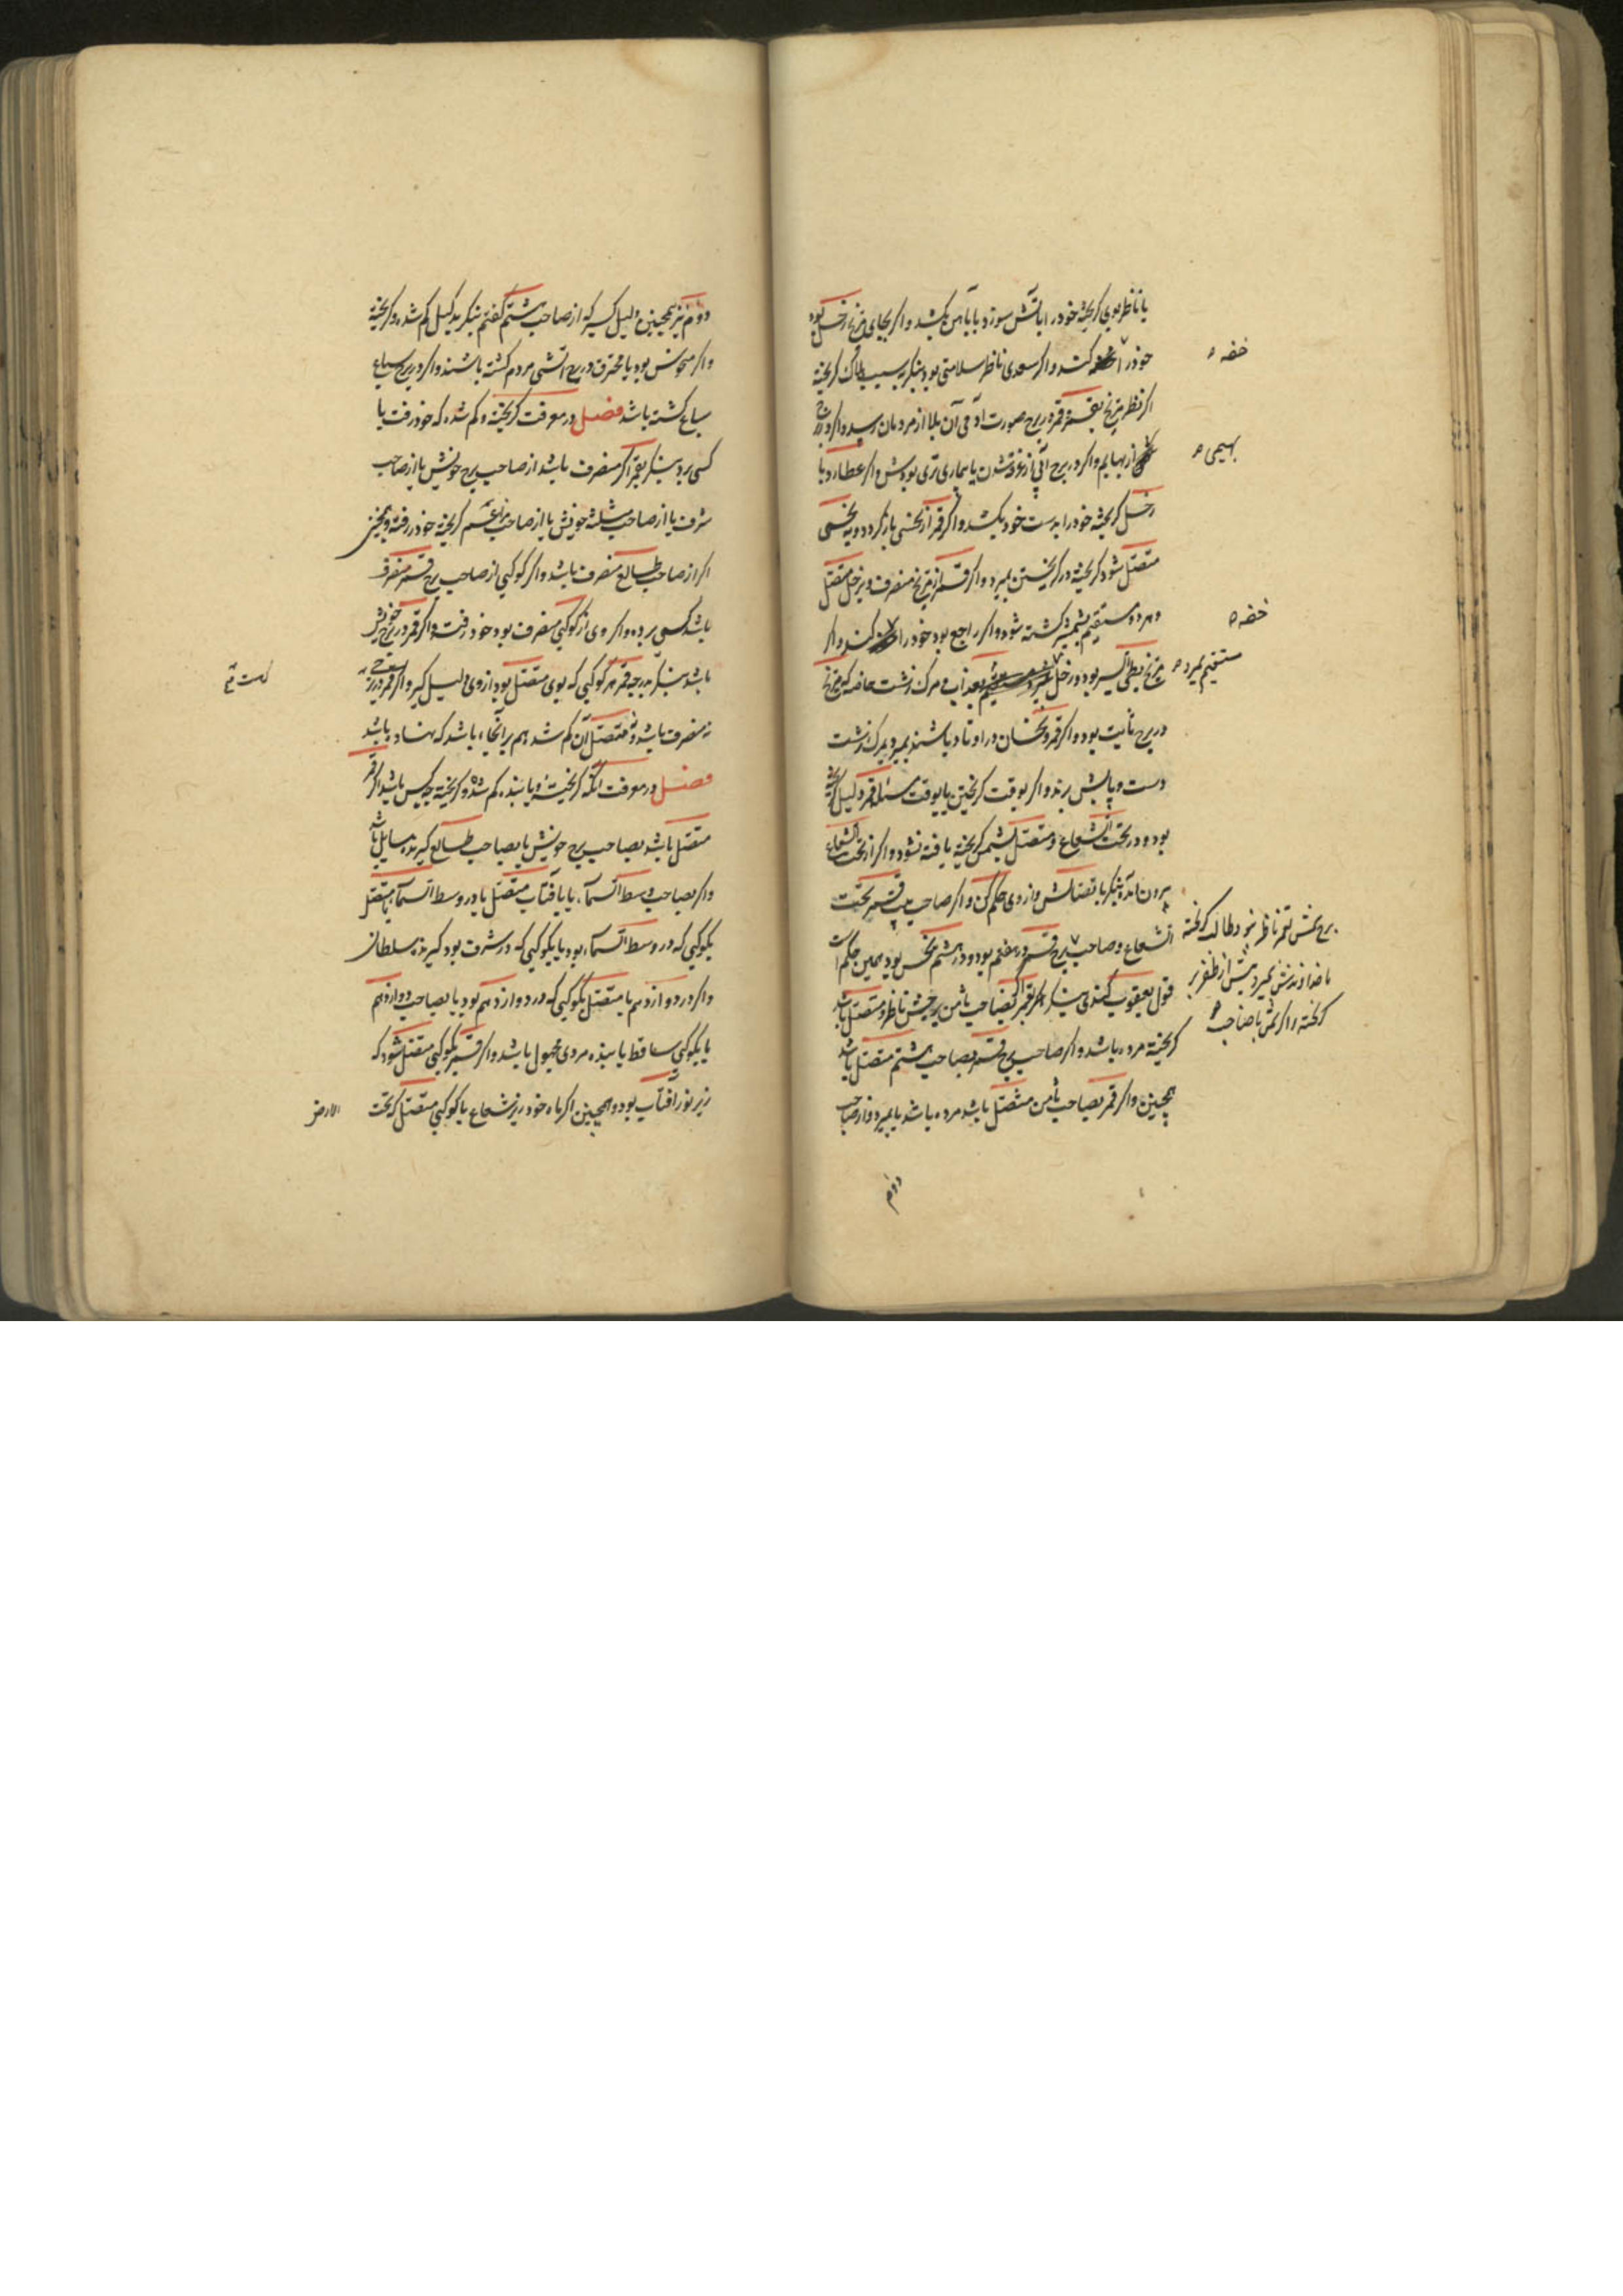 یا ناظر بوی گریخته خود را بآتش سوزد یا بآهن بکشد و اگر بجای مریخ زحل بود
خود را خفه کند و اگر سعدی ناظر سلامتی بود بنگر بسبب هلاک گریخته
اگر نظر مریخ بقمر و قمر در برج صورت آدمی آن بلا از مردمان رسد و اگر در برج
از بهایم و اگر در برج آبی از غرقه شدن یا بیماری تری بودش و اگر عطارد با
زحل گریخته خود را بدست خود بکشد و اگر قمر از نحسی باز گردد و به نحسی
متصل شود گریخته در گریختن بمیرد و اگر قمر از مریخ منصرف و بزحل متصل
و هر دو مستقیم بشمشیر کشته شود و اگر راجع بود خود را کند و اگر
مریخ بطی السیر بود و زحل بعذاب و مرک زشت خاصه که مریخ
در برج ثابت بود و اگر قمر و نحسان در اوتاد باشند بمیرد بمرک زشت
دست و پایش برند و اگر بوقت گریختن یا بوقت مسئله قمر دلیل گریخته
بود و در تحت الشعاع و متصل بشمس گریخته یافته نشود و اگر از تحت الشعاع
برون آمده بنگر باتصالش و از وی حکم کن و اگر صاحب بیت قمر تحت
الشعاع و صاحب برج قمر در هفتم بود و در هشتم نحس بود همین حکم است
قول یعقوب کندی بنگر بقمر اگر بصاحب ثامن برجش ناظر و متصل باشد
گریخته مرده باشد و اگر صاحب برج قمر بصاحب هشتم متصل باشد
همچنین و اگر قمر بصاحب ثامن متصل باشد مرده باشد یا بمیرد و از صاحب
دوم
خفه
بهیمی
خفه
مستقیم بمیرد
برج نحسش بقمر ناظر بود هلاک گریخته
یا خداوندش بمیرد پیش از ظفر بر
گریخته و اگر نحس با صاحب
دوم نیز همچنین دلیل گیر که از صاحب هشتم گفتم بنگر بدلیل گم شده و گریخته
و اگر منحوس بود یا محترق در برج آتشی مردم کشته باشند و اگر در برج سباع
سباع کشته باشد فصل در معرفت گریخته و گم شده که خود رفت یا
کسی برد بنگر بقمر اگر منصرف باشد از صاحب برج خویش یا از صاحب
شرف یا از صاحب مثلثه خویش یا از صاحب گریخته خود رفته و همچنین
اگر از صاحب طالع منصرف باشد و اگر کوکبی از صاحب برج قمر منصرف
باشد کسی برده و اگر وی از کوکبی منصرف بود خود رفت و اگر قمر در برج خویش
باشد بنگر بدرجه قمر هر کوکبی که بوی متصل بود از وی دلیل گیر و اگر قمر در
نه منصرف باشد و نه متصل آن گم شده هم بر آنجا باشد که نهاده باشد
فصل در معرفت آنکه گریخته و یا بنده گم شده و گریخته چه کس باشد اگر قمر
متصل باشد بصاحب برج خویش یا بصاحب طالع گیرنده سایل باشد
و اگر بصاحب وسط السماء یا بآفتاب متصل یا در وسط السماء متصل
بکوکبی که در وسط السماء بود یا بکوکبی که در شرف بود گیرنده سلطان
و اگر در دوازدهم یا متصل بکوکبی که در دوازدهم بود یا بصاحب دوازدهم
یا بکوکبی ساقط یابنده مردی مجهول باشد و اگر قمر بکوکبی متصل شود که
زیر نور آفتاب بود و همچنین اگر ماه خود زیر شعاع یا کوکبی متصل که تحت
الارض